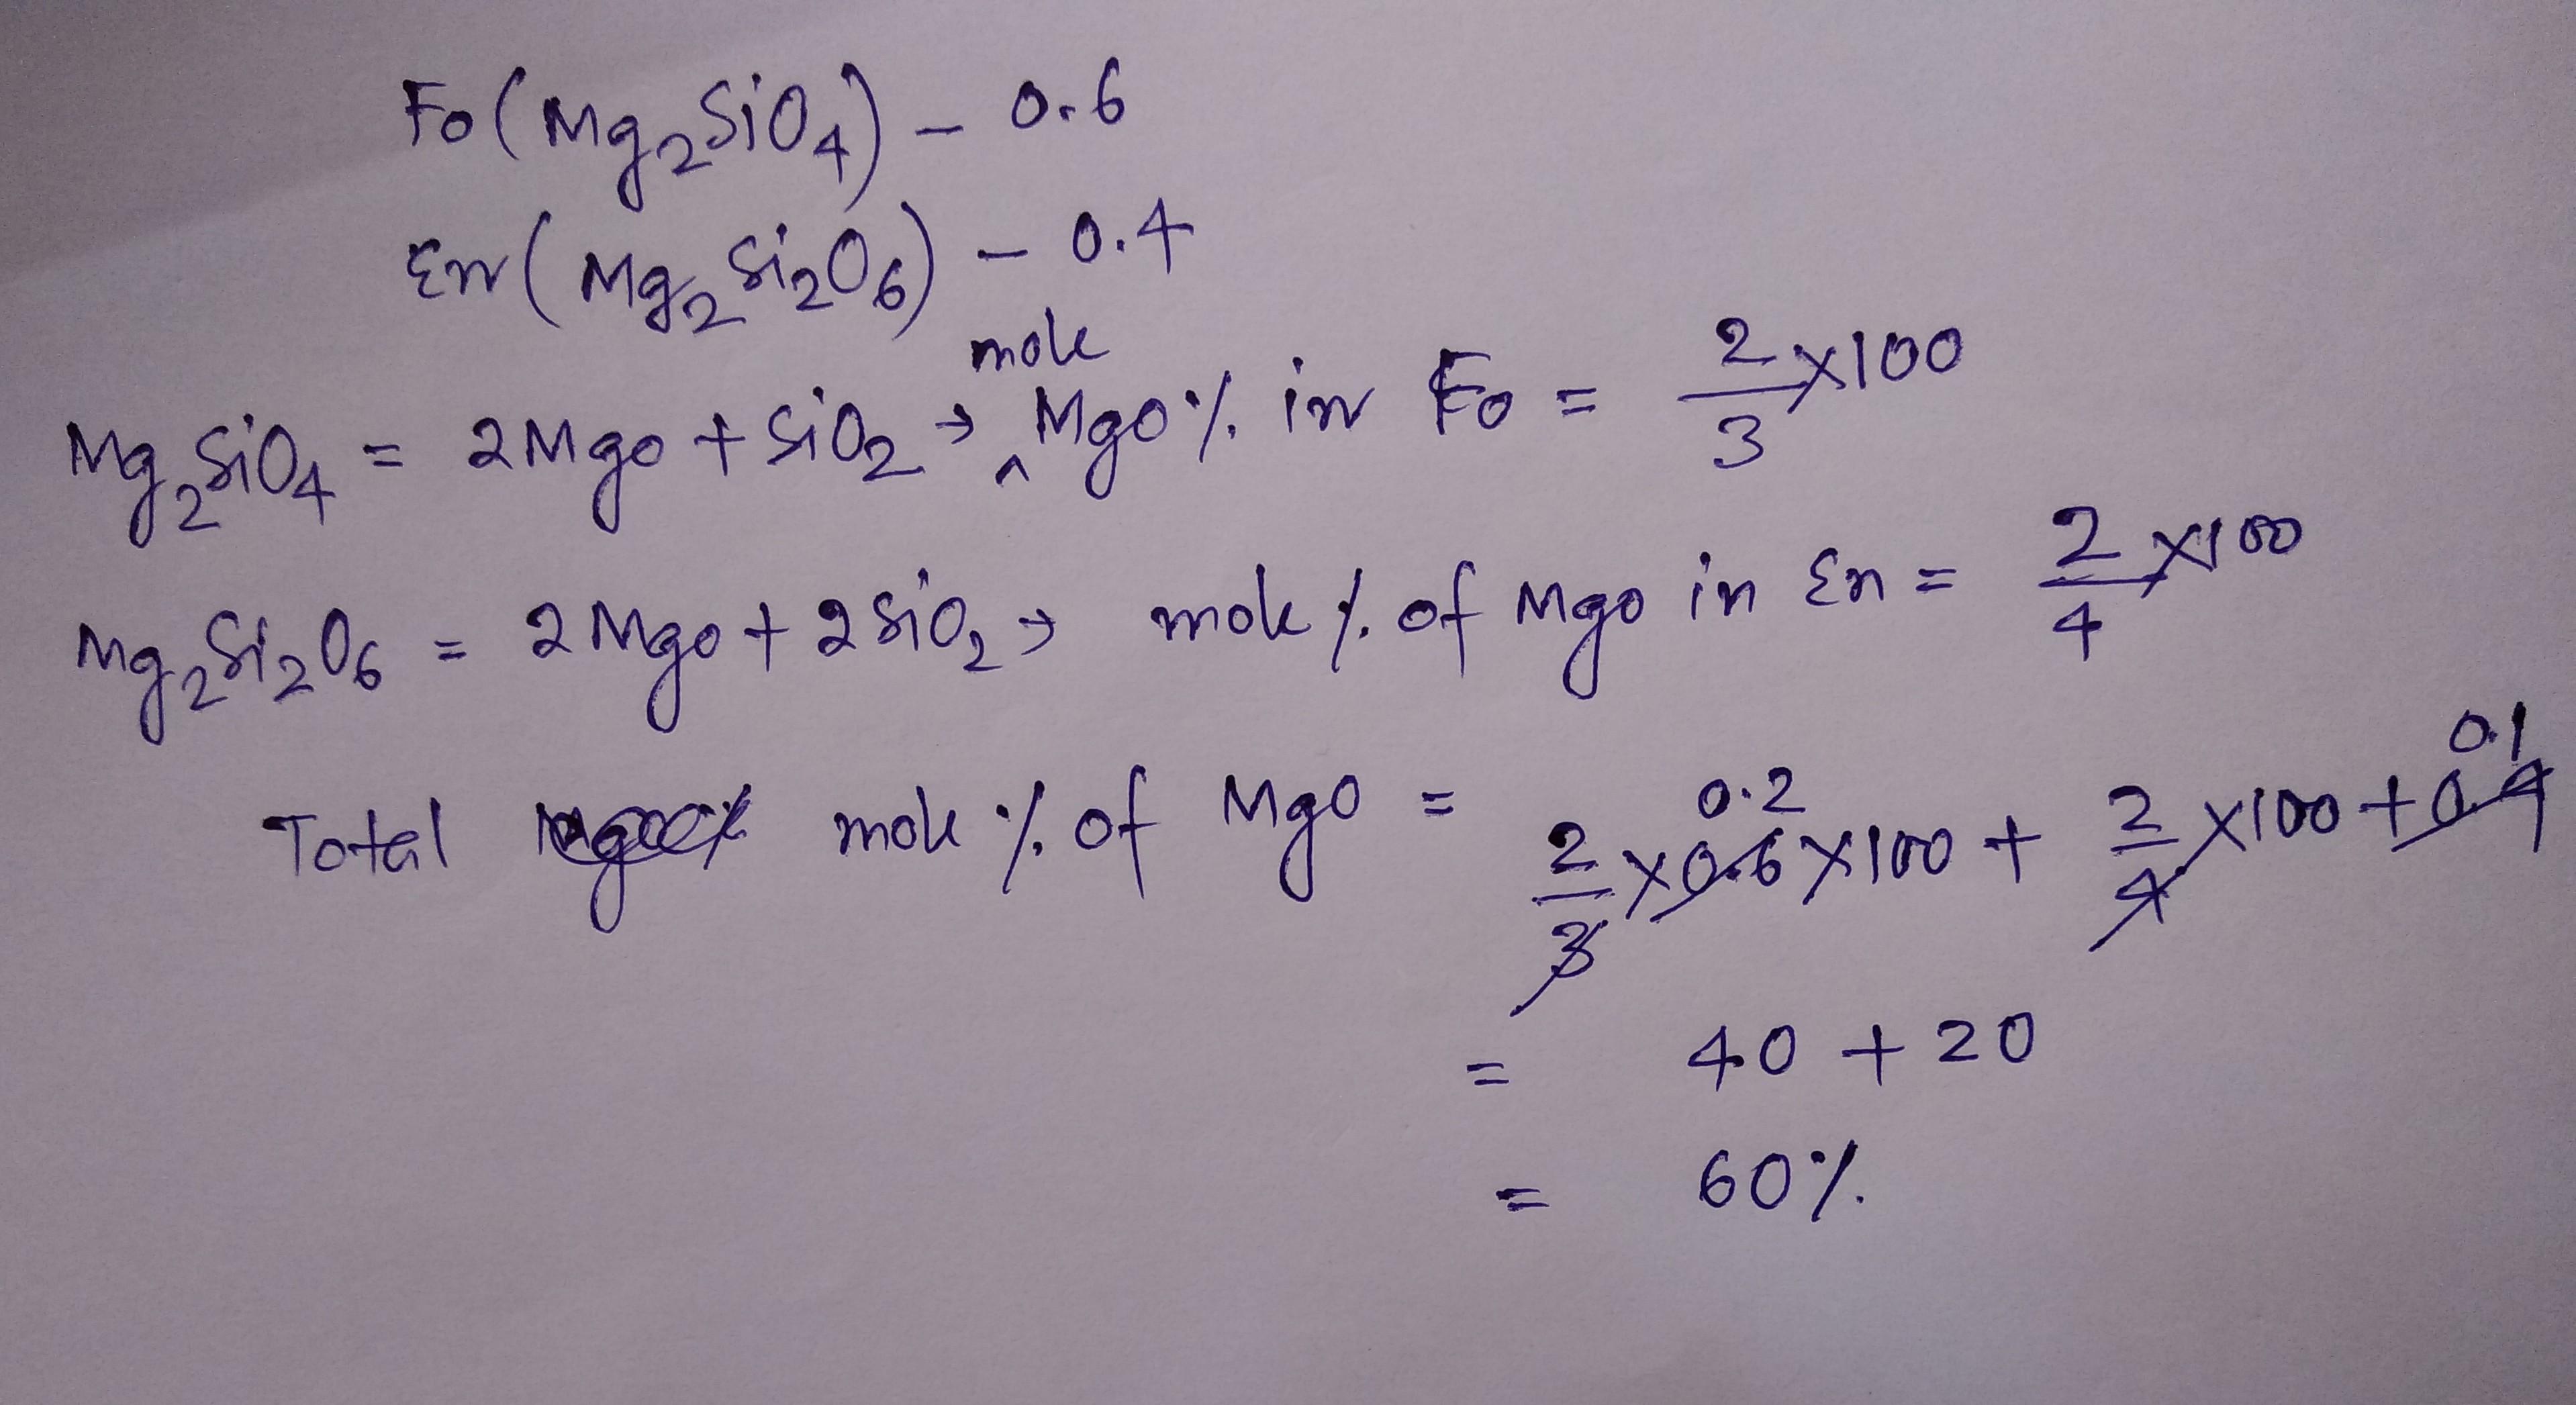 Fo (Mg₂SiO₄) – 0.6
En (Mg₂Si₂O₆) – 0.4
Mg₂SiO₄ = 2MgO + SiO₂ → mole MgO % in Fo = 2/3 × 100
Mg₂Si₂O₆ = 2MgO + 2SiO₂ → mole % of MgO in En = 2/4 × 100
Total mole % of MgO = 2/3 × 0.6 0.2 × 100 + 2/4 × 100 + 0.4 0.1
= 40 + 20
= 60%